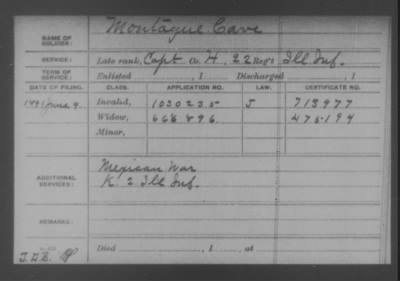 NAME OF SOLDIER: Montague Cave
SERVICE: Late rank, Capt Co. H, 22 Reg't Ill Inf.
TERM OF SERVICE: Enlisted , 1 Discharged , 1
DATE OF FILING. CLASS. APPLICATION NO. LAW. CERTIFICATE NO.
1891 June 9. Invalid, 1030225 J 713977
Widow, 668896 475194
Minor,
ADDITIONAL SERVICES: Mexican War
K. 2 Ill Inf.
REMARKS:
Died , 1 , at